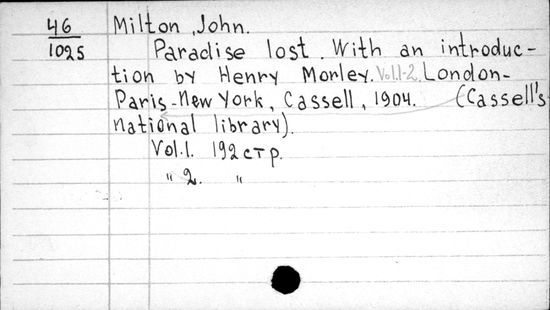 46 Milton, John.
1025 Paradise lost. With an introduc-
tion by Henry Morley. Vol.1-2. London-
Paris-New York, Cassell, 1904. (Cassell's
national library).
Vol.1. 192 стр.
" 2. "